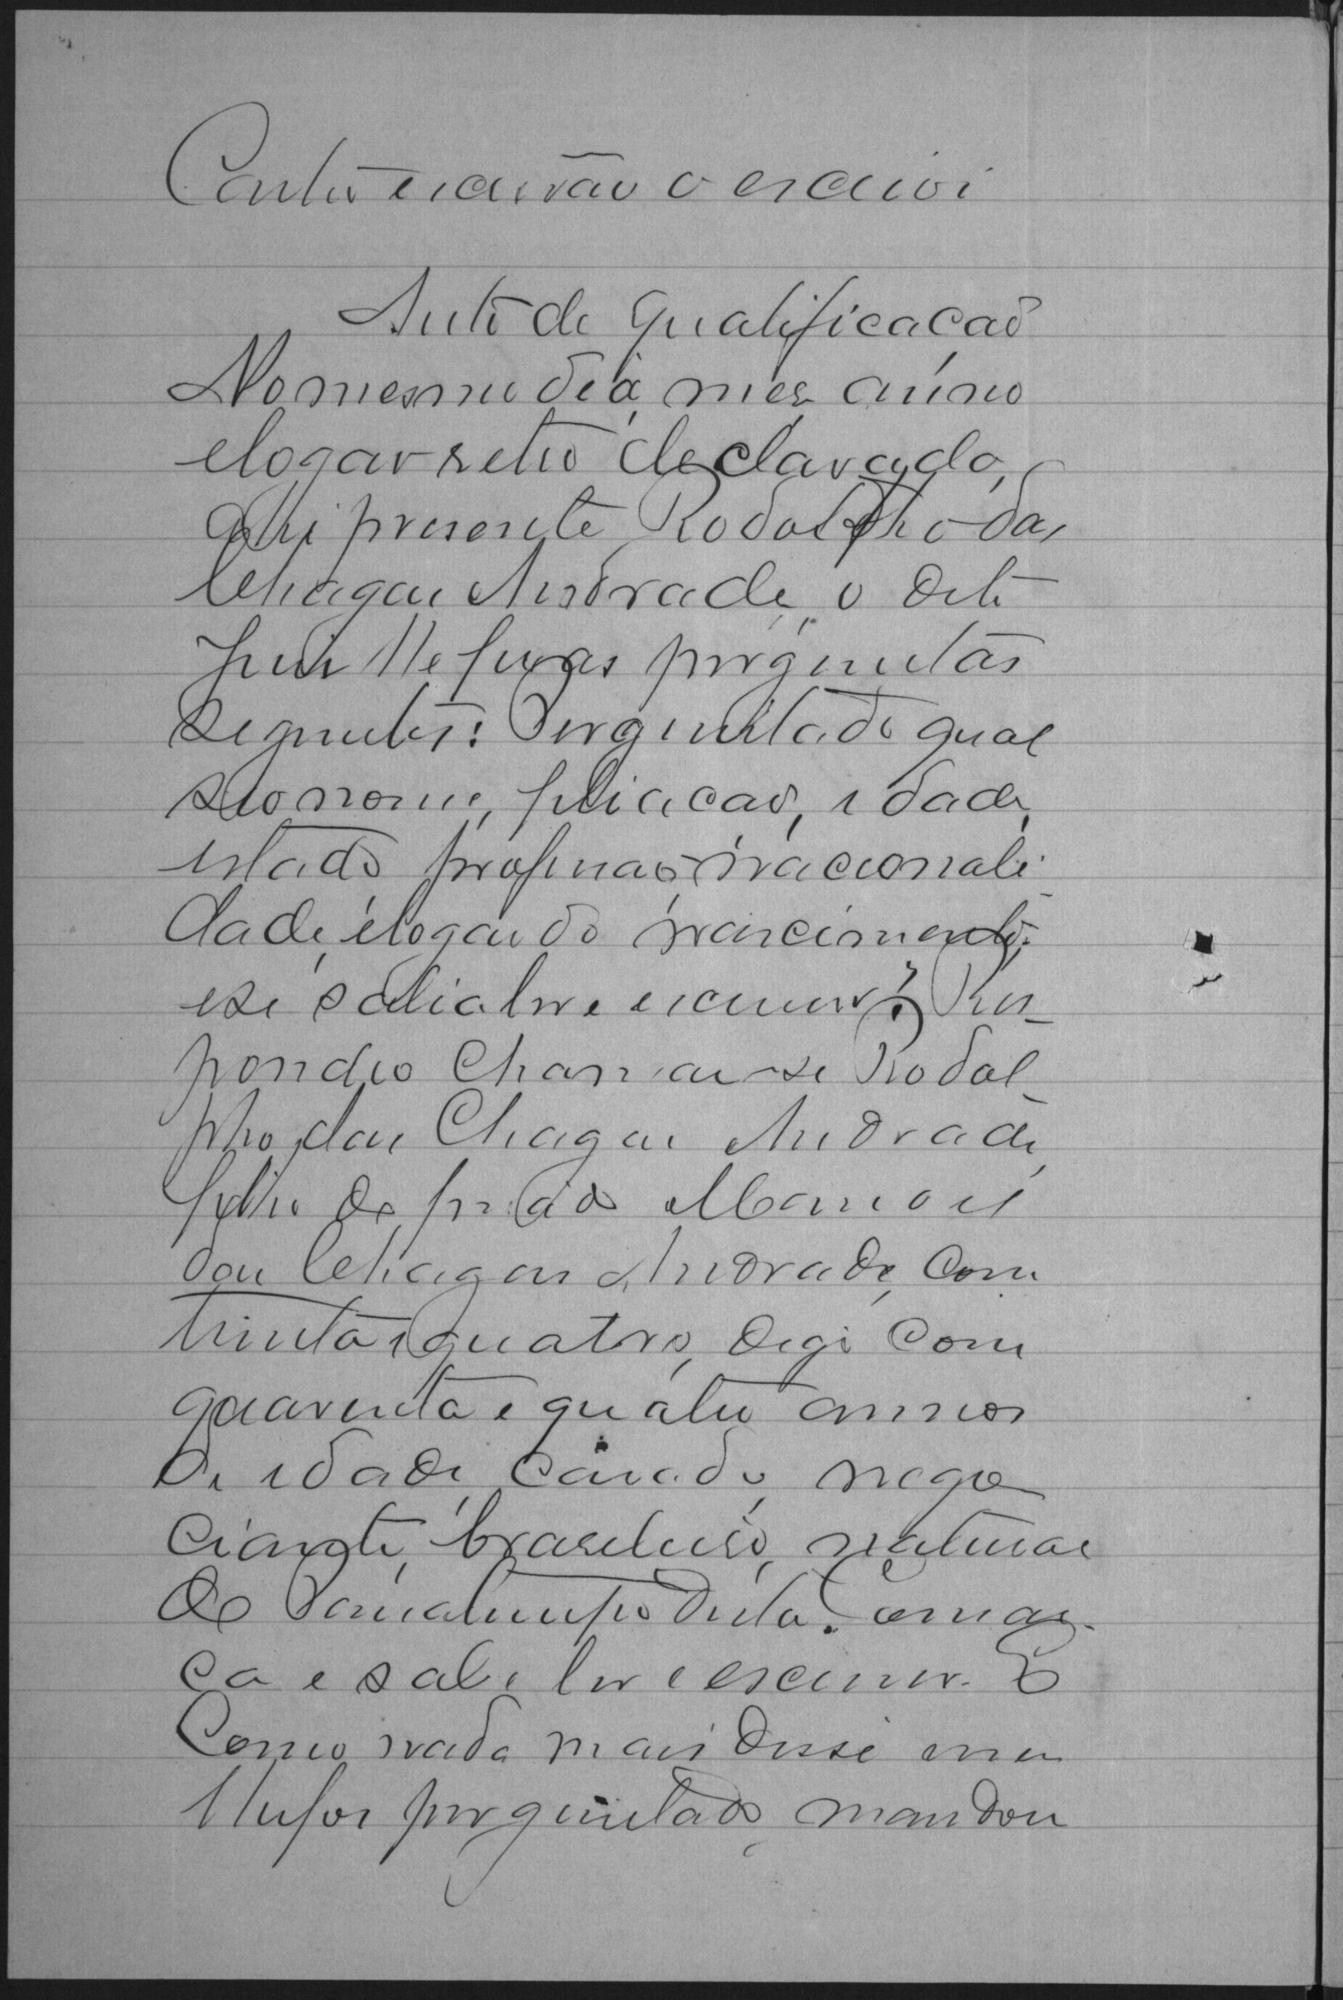 Couto escrivão o escrivi
Auto de qualificação
No mesmo dia, mes, anno
e logar retro declarado,
ahi presente Rodolpho das
Chagas Andrade, o dito
juiz lhe fez as perguntas
seguintes: Perguntado qual
seo nome, filiacão, idade,
estado, profissão, nacionali-
dade, e logar do nascimento,
e se sabia ler e escrever? Res-
pondeo chamar-se Rodol-
pho das Chagas Andrade,
filho de finado Manoel
das Chagas Andrade, com
trinta e quatro, digo com
quarenta e quatro annos
de idade, casado, nego-
ciante, brasileiro, natural
de desta Comar-
ca e sabe ler e escrever. E
Como nada mais disse nem
lhe foi perguntado, mandou